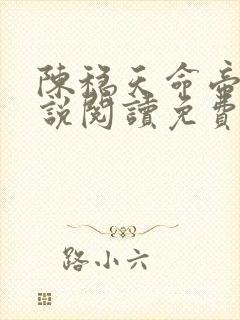 陳稳天命帝
說閱讀免費
路小六